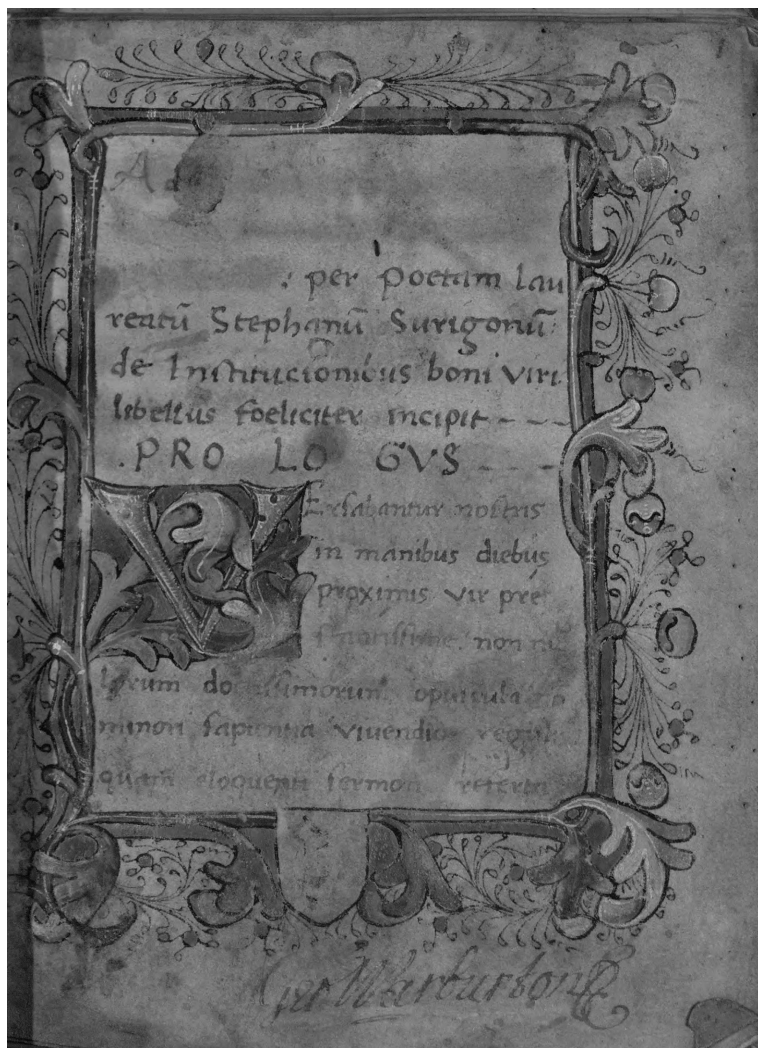 Ad
: per poetam lau
reatū Stephanū Surigonū:
de Institucionibus boni viri
libellus foeliciter incipit - - -
.PRO LO GVS - - -
VErsabantur nostris
in manibus diebus
proximis vir pre
non
doctissimorum opuscula
minori sapientia viuendi
quam eloquenti sermon referta
Geo Warburton